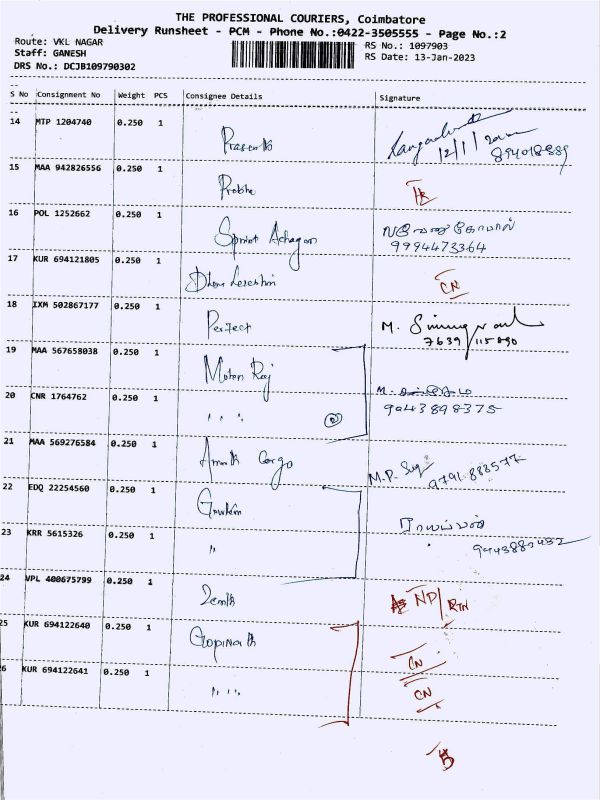 THE PROFESSIONAL COURIERS, Coimbatore
Delivery Runsheet - PCM - Phone No.:0422-3505555 - Page No.:2
Route: VKL NAGAR
RS No.: 1097903
Staff: GANESH
RS Date: 13-Jan-2023
DRS No.: DCJB109790302
S No Consignment No Weight PCS Consignee Details Signature
14 MTP 1204740 0.250 1 Prasanth
12/1/
15 MAA 942826556 0.250 1 Prabhu
16 POL 1252662 0.250 1 Sprint
9994473364
17 KUR 694121805 0.250 1 CN
18 IXM 502867177 0.250 1 Perfect M.
7639/115890
19 MAA 567658038 0.250 1 Mohan Raj M.
20 CNR 1764762 0.250 1 " " 9443898375
21 MAA 569276584 0.250 1 Cargo M.P. 9791 888577
22 EDQ 22254560 0.250 1
23 KRR 5615326 0.250 1 "
24 VPL 400675799 0.250 1 Zenith ND/RTN
25 KUR 694122640 0.250 1 Gopinath CN
26 KUR 694122641 0.250 1 " " CN